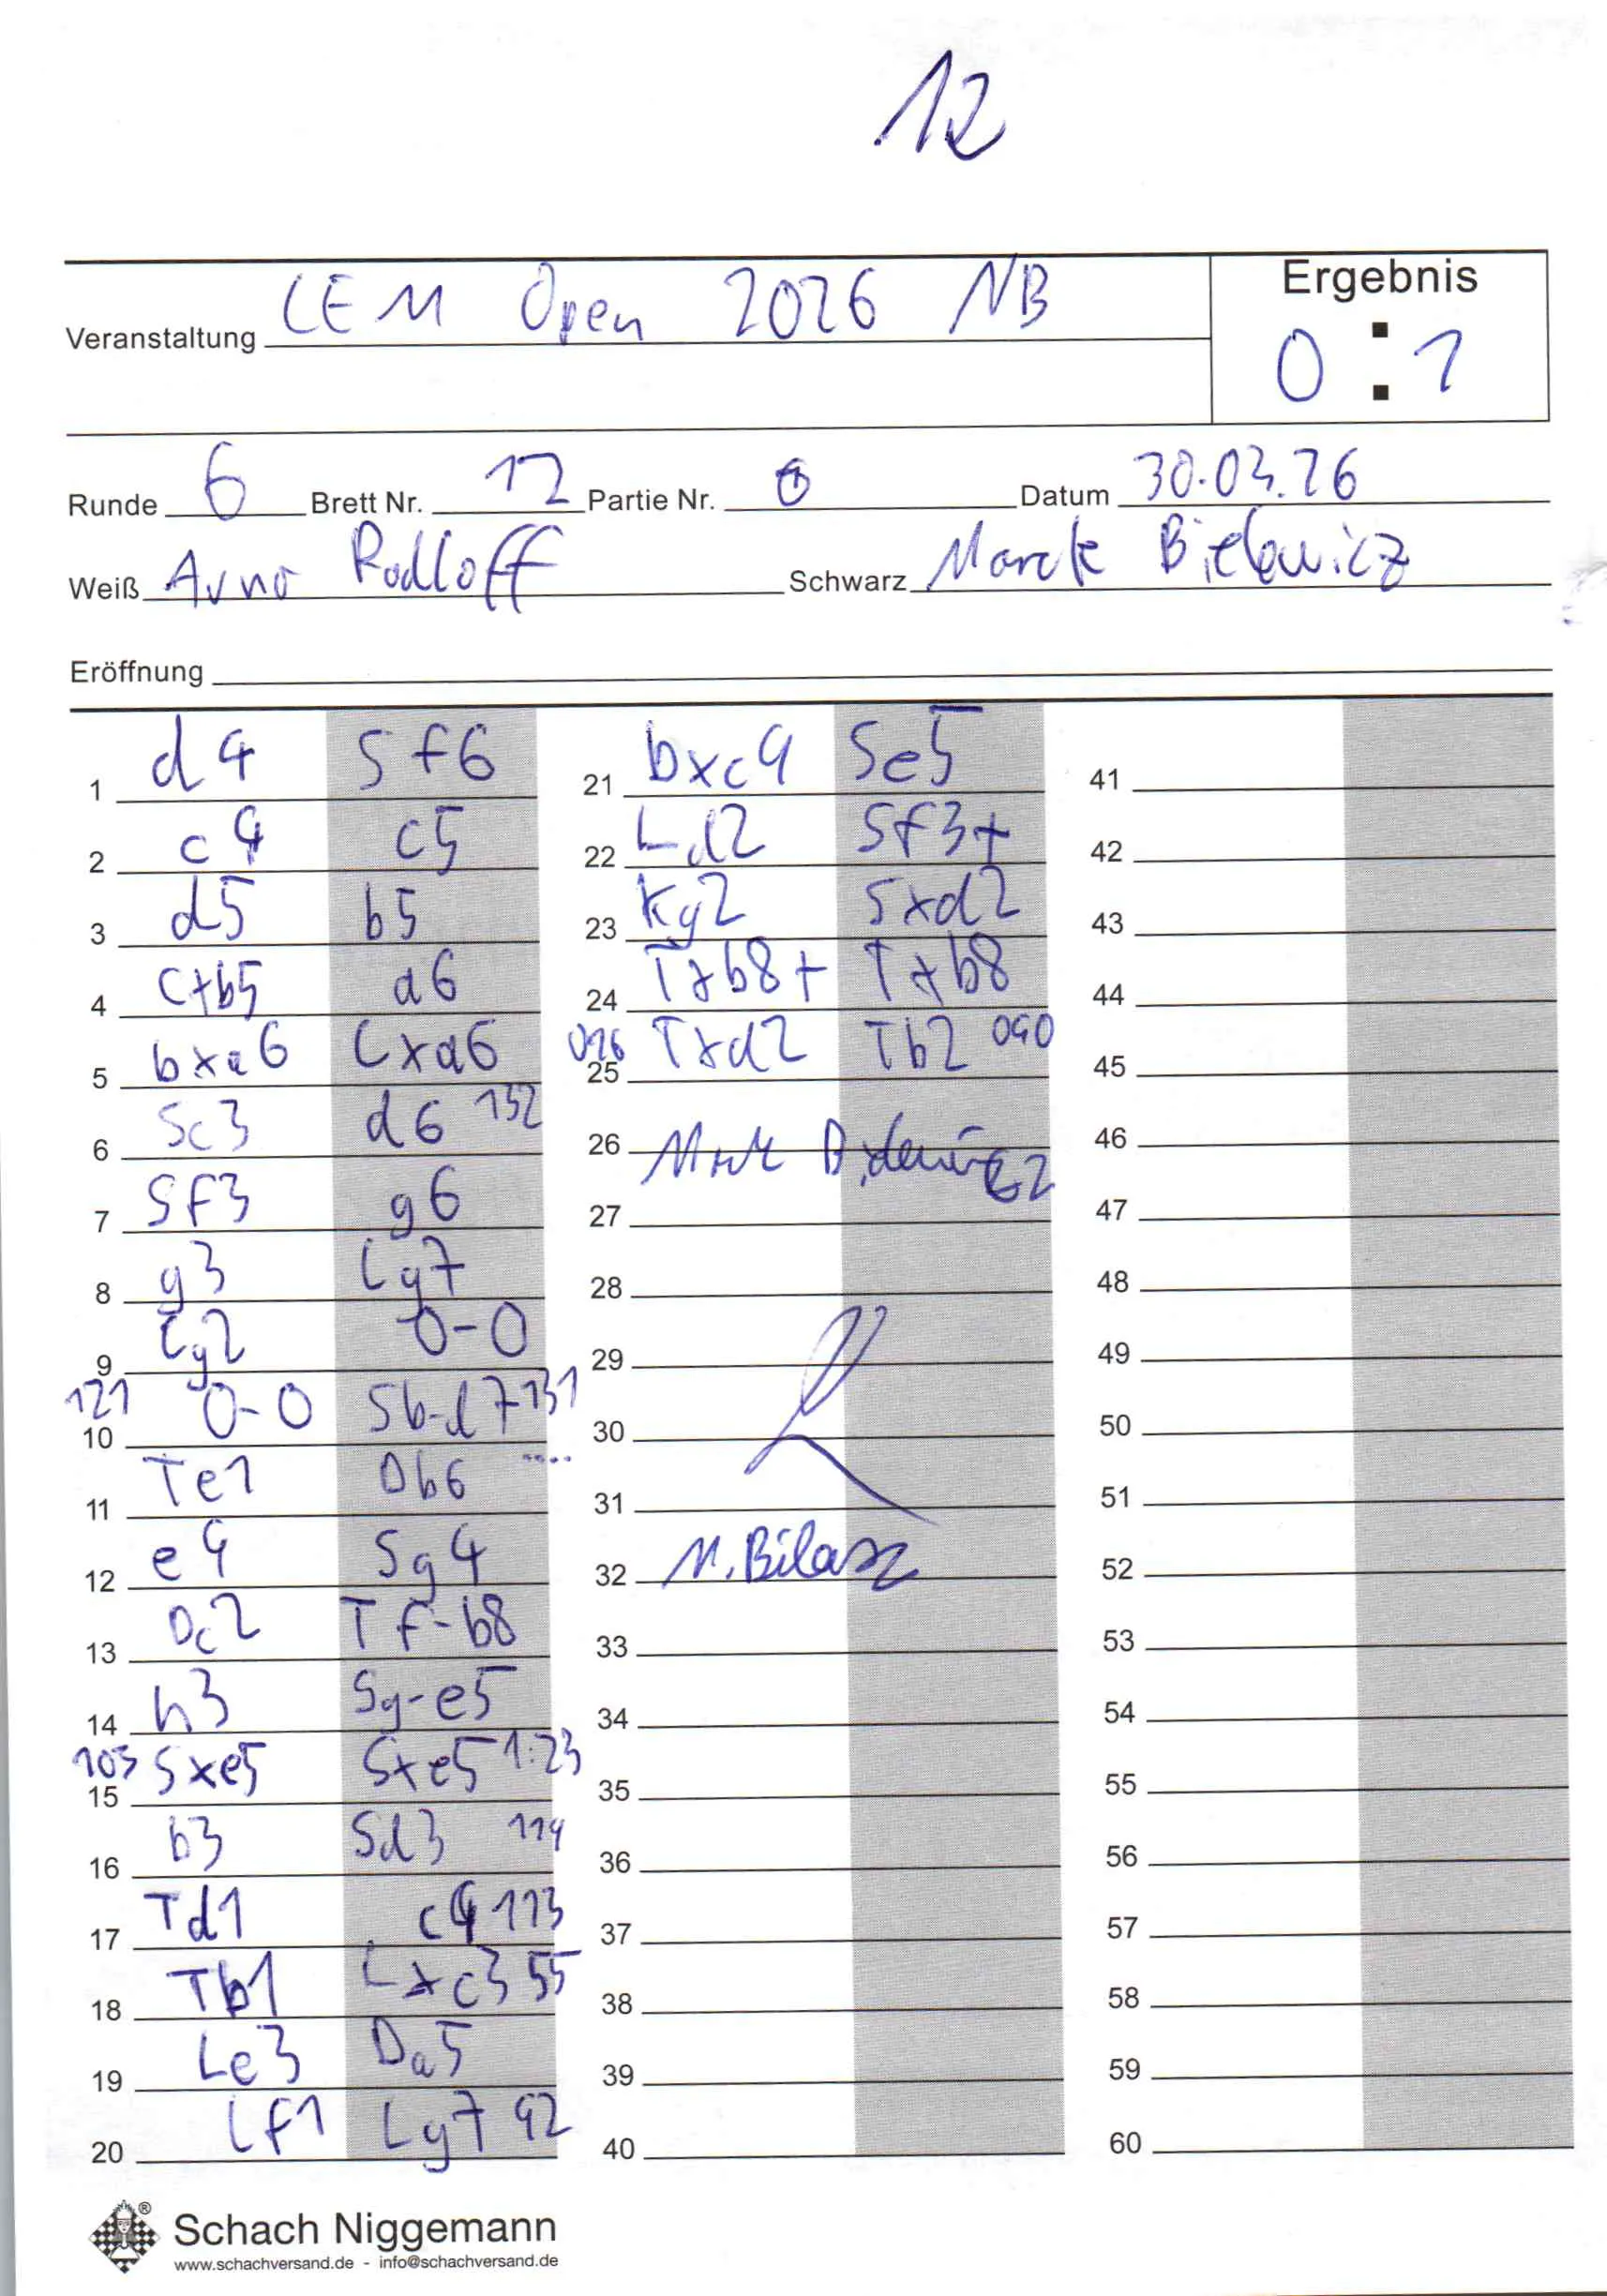 12
Veranstaltung LEM Open 2026 NB
Ergebnis
0 : 1
Runde 6 Brett Nr. 12 Partie Nr. 6 Datum 30.03.26
Weiß Arno Rodloff Schwarz Marek Bielewicz
Eröffnung
1 d4 Sf6
2 c4 c5
3 d5 b5
4 cxb5 a6
5 bxa6 Lxa6
6 Sc3 d6 132
7 Sf3 g6
8 g3 Lg7
9 Lg2 0-0
10 121 0-0 Sb-d7 131
11 Te1 Db6 ....
12 e4 Sg4
13 Dc2 Tf-b8
14 h3 Sg-e5
15 103 Sxe5 Sxe5 1:23
16 b3 Sd3 114
17 Td1 c4 113
18 Tb1 Lxc3 55
19 Le3 Da5
20 Lf1 Lg7 42
21 bxc4 Se5
22 Ld2 Sf3+
23 Kg2 Sxd2
24 Txb8+ Txb8
25 026 Txd2 Tb2 040
26
27
28
29
30
31
32
33
34
35
36
37
38
39
40
41
42
43
44
45
46
47
48
49
50
51
52
53
54
55
56
57
58
59
60
Schach Niggemann
www.schachversand.de - info@schachversand.de